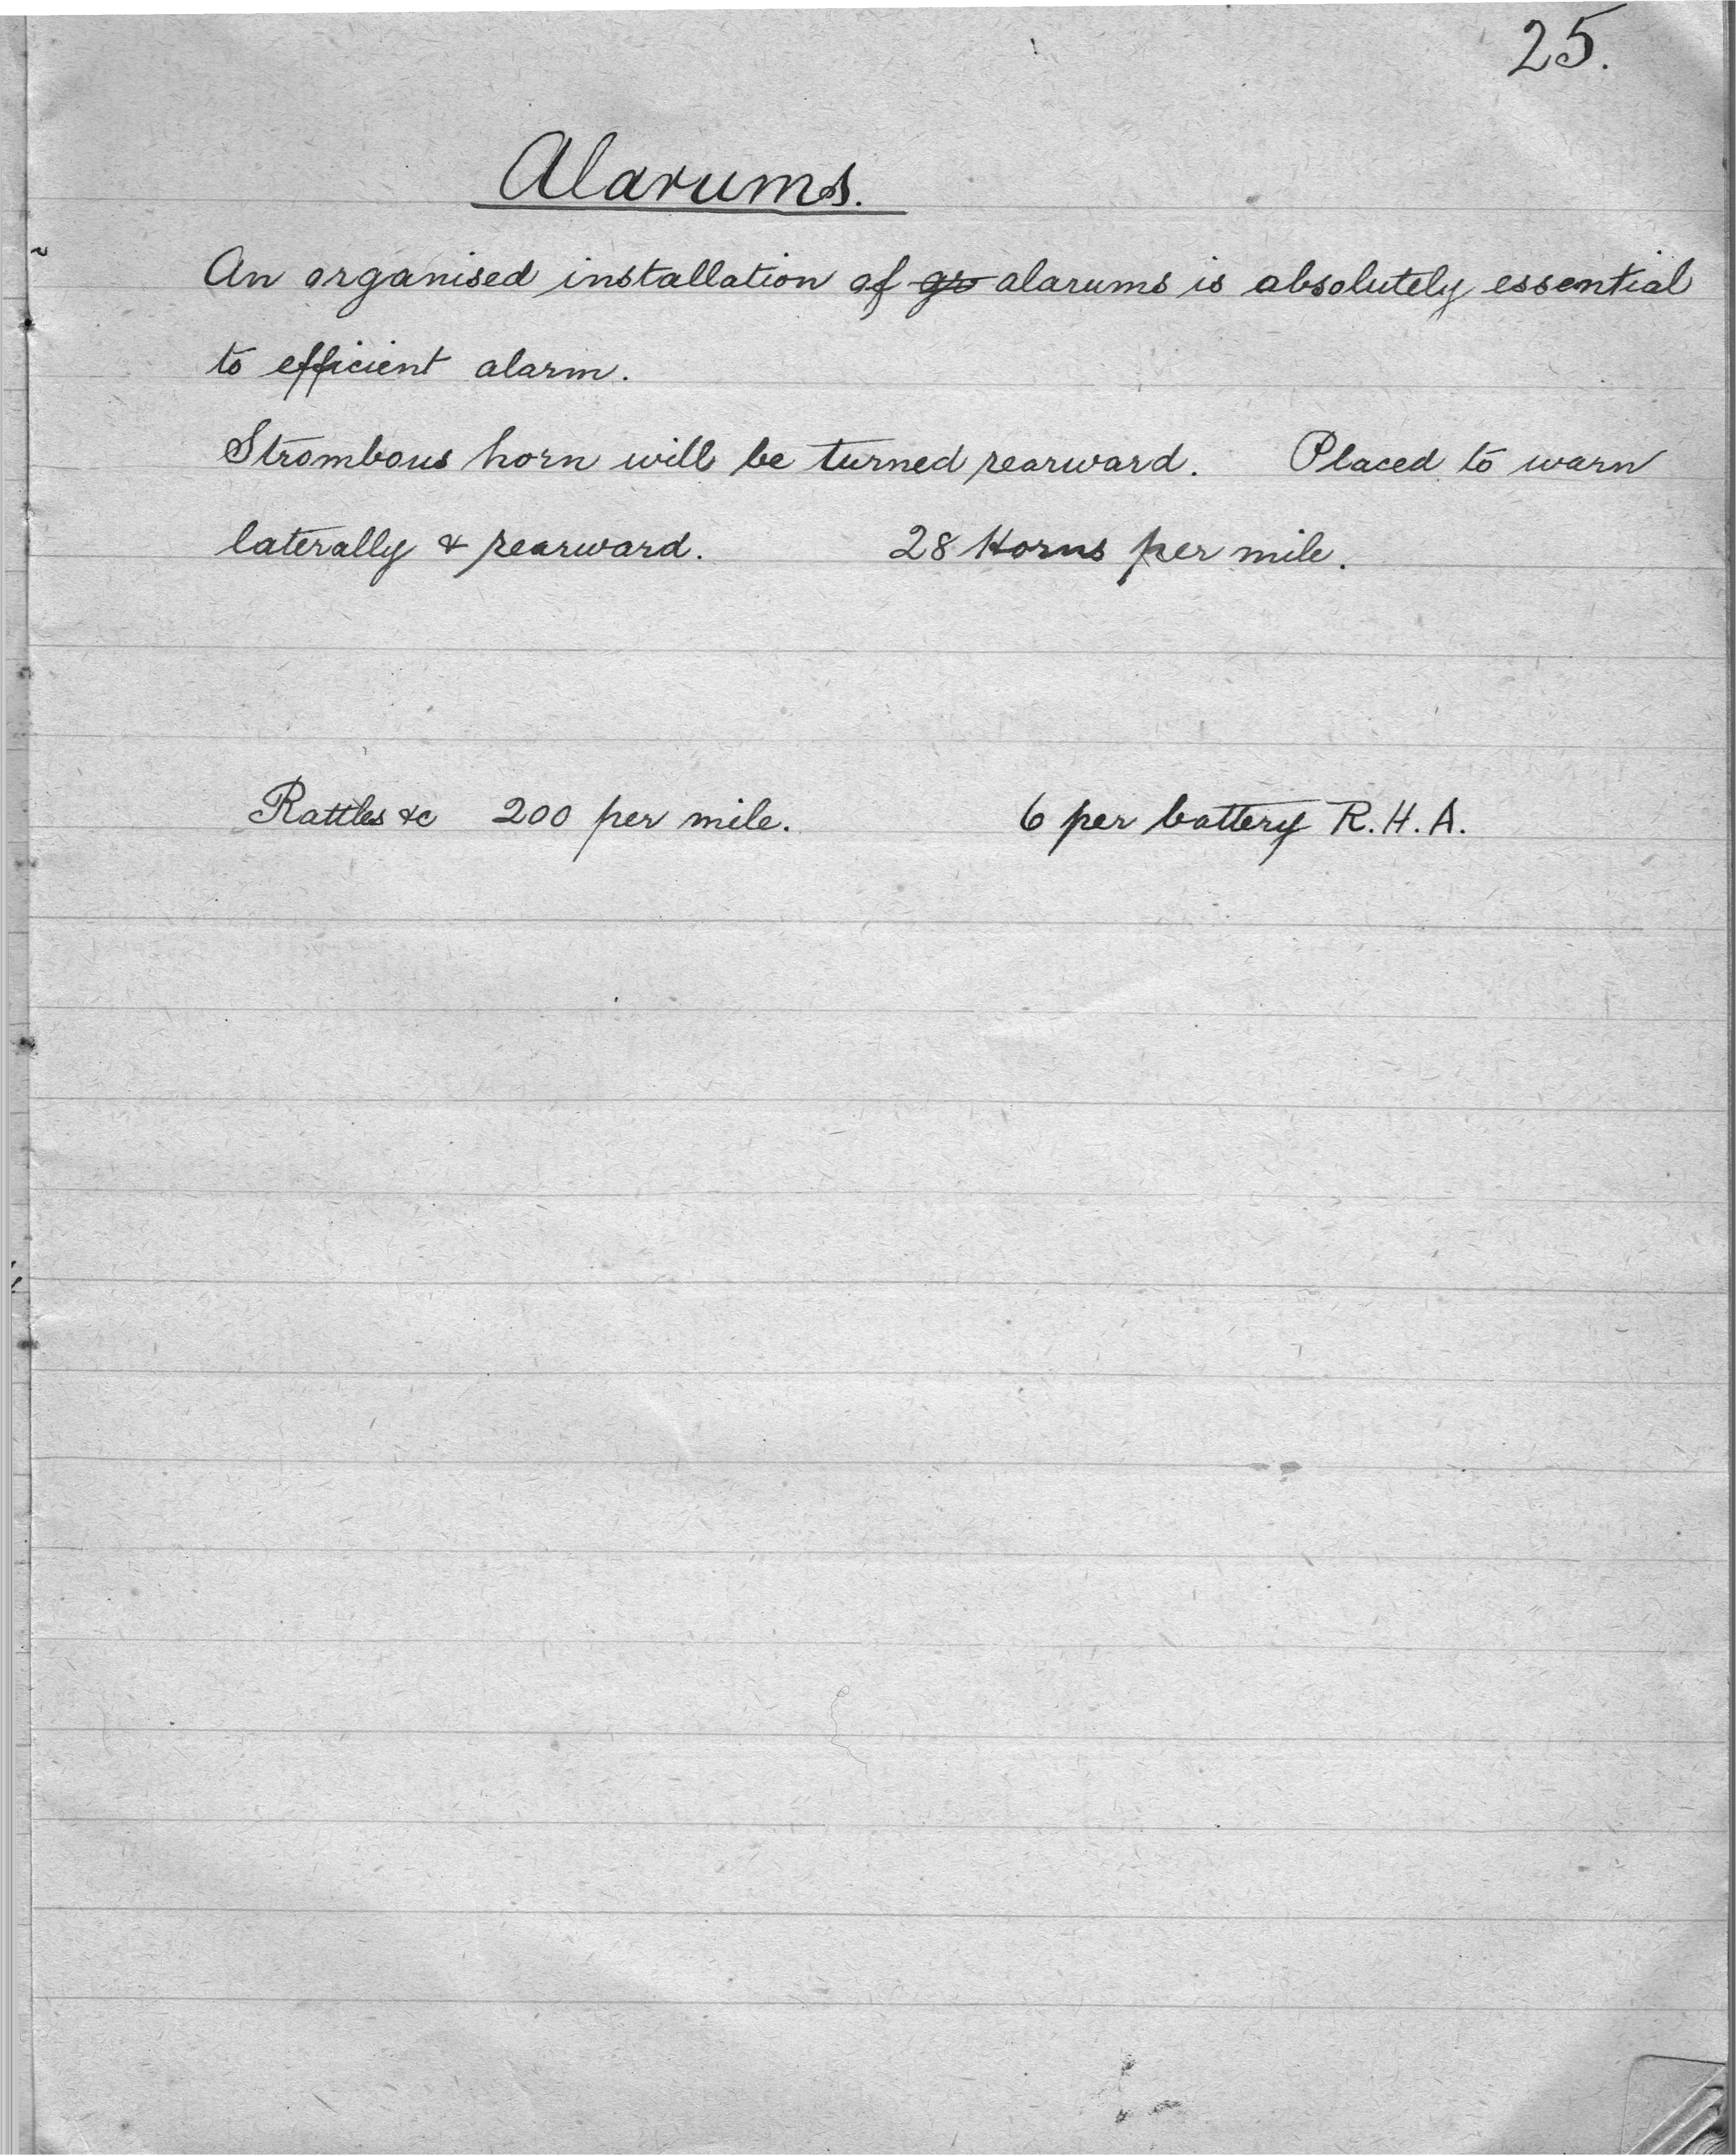 25.
Alarums.
An organised installation of gs alarums is absolutely essential
to efficient alarm.
Strombous horn will be turned rearward. Placed to warn
laterally & rearward. 28 Horns per mile.
Rattles &c 200 per mile. 6 per battery R.H.A.